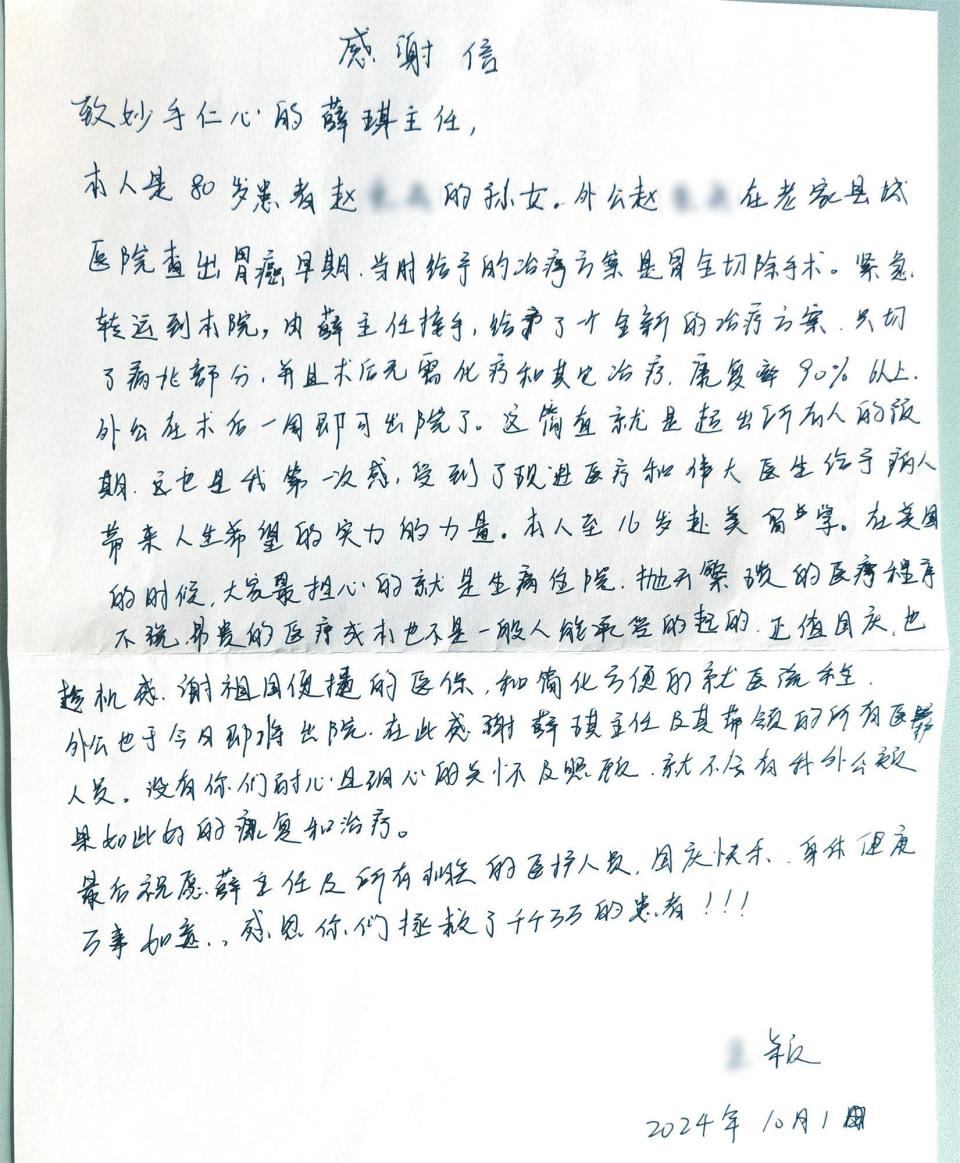 感谢信
致妙手仁心的薛琪主任,
本人是80岁患者赵 的孙女。外公赵 在老家县城
医院查出胃癌早期.当时给予的治疗方案是胃全切除手术。紧急.
转运到本院,由薛主任接手,给予了个全新的治疗方案.只切
了病兆部分,并且术后无需化疗和其它治疗.康复率90%以上.
外公在术后一周即可出院了。这简直就是超出所有人的预
期.这也是我第一次感,受到了现进医疗和伟大医生给予病人
带来人生希望的实力的力量。本人至16岁赴美留学。在美国
的时候,大家最担心的就是生病住院.抛开繁琐的医疗程序
不说.昂贵的医疗成本也不是一般人能承受的起的.正值国庆,也
趁机感.谢祖国便捷的医保,和简化方便的就医流程.
外公也于今日即将出院.在此感谢薛琪主任及其带领的所有医护
人员。没有你们耐心且细心的关怀及照顾.就不会有我外公效
果如此好的康复和治疗。
最后祝愿薛主任及所有 的医护人员,国庆快乐.身体健康
万事如意.,感恩你们拯救了千千万万的患者!!!
颖
2024年10月1日